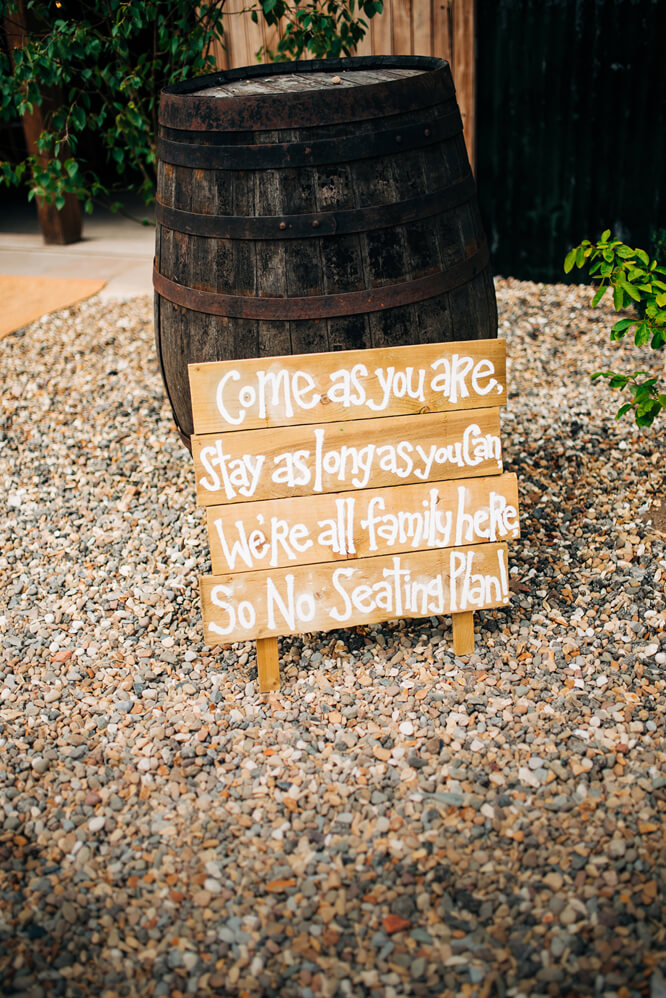 Come as you are,
Stay as long as you Can
We're all family here,
So No Seating Plan!